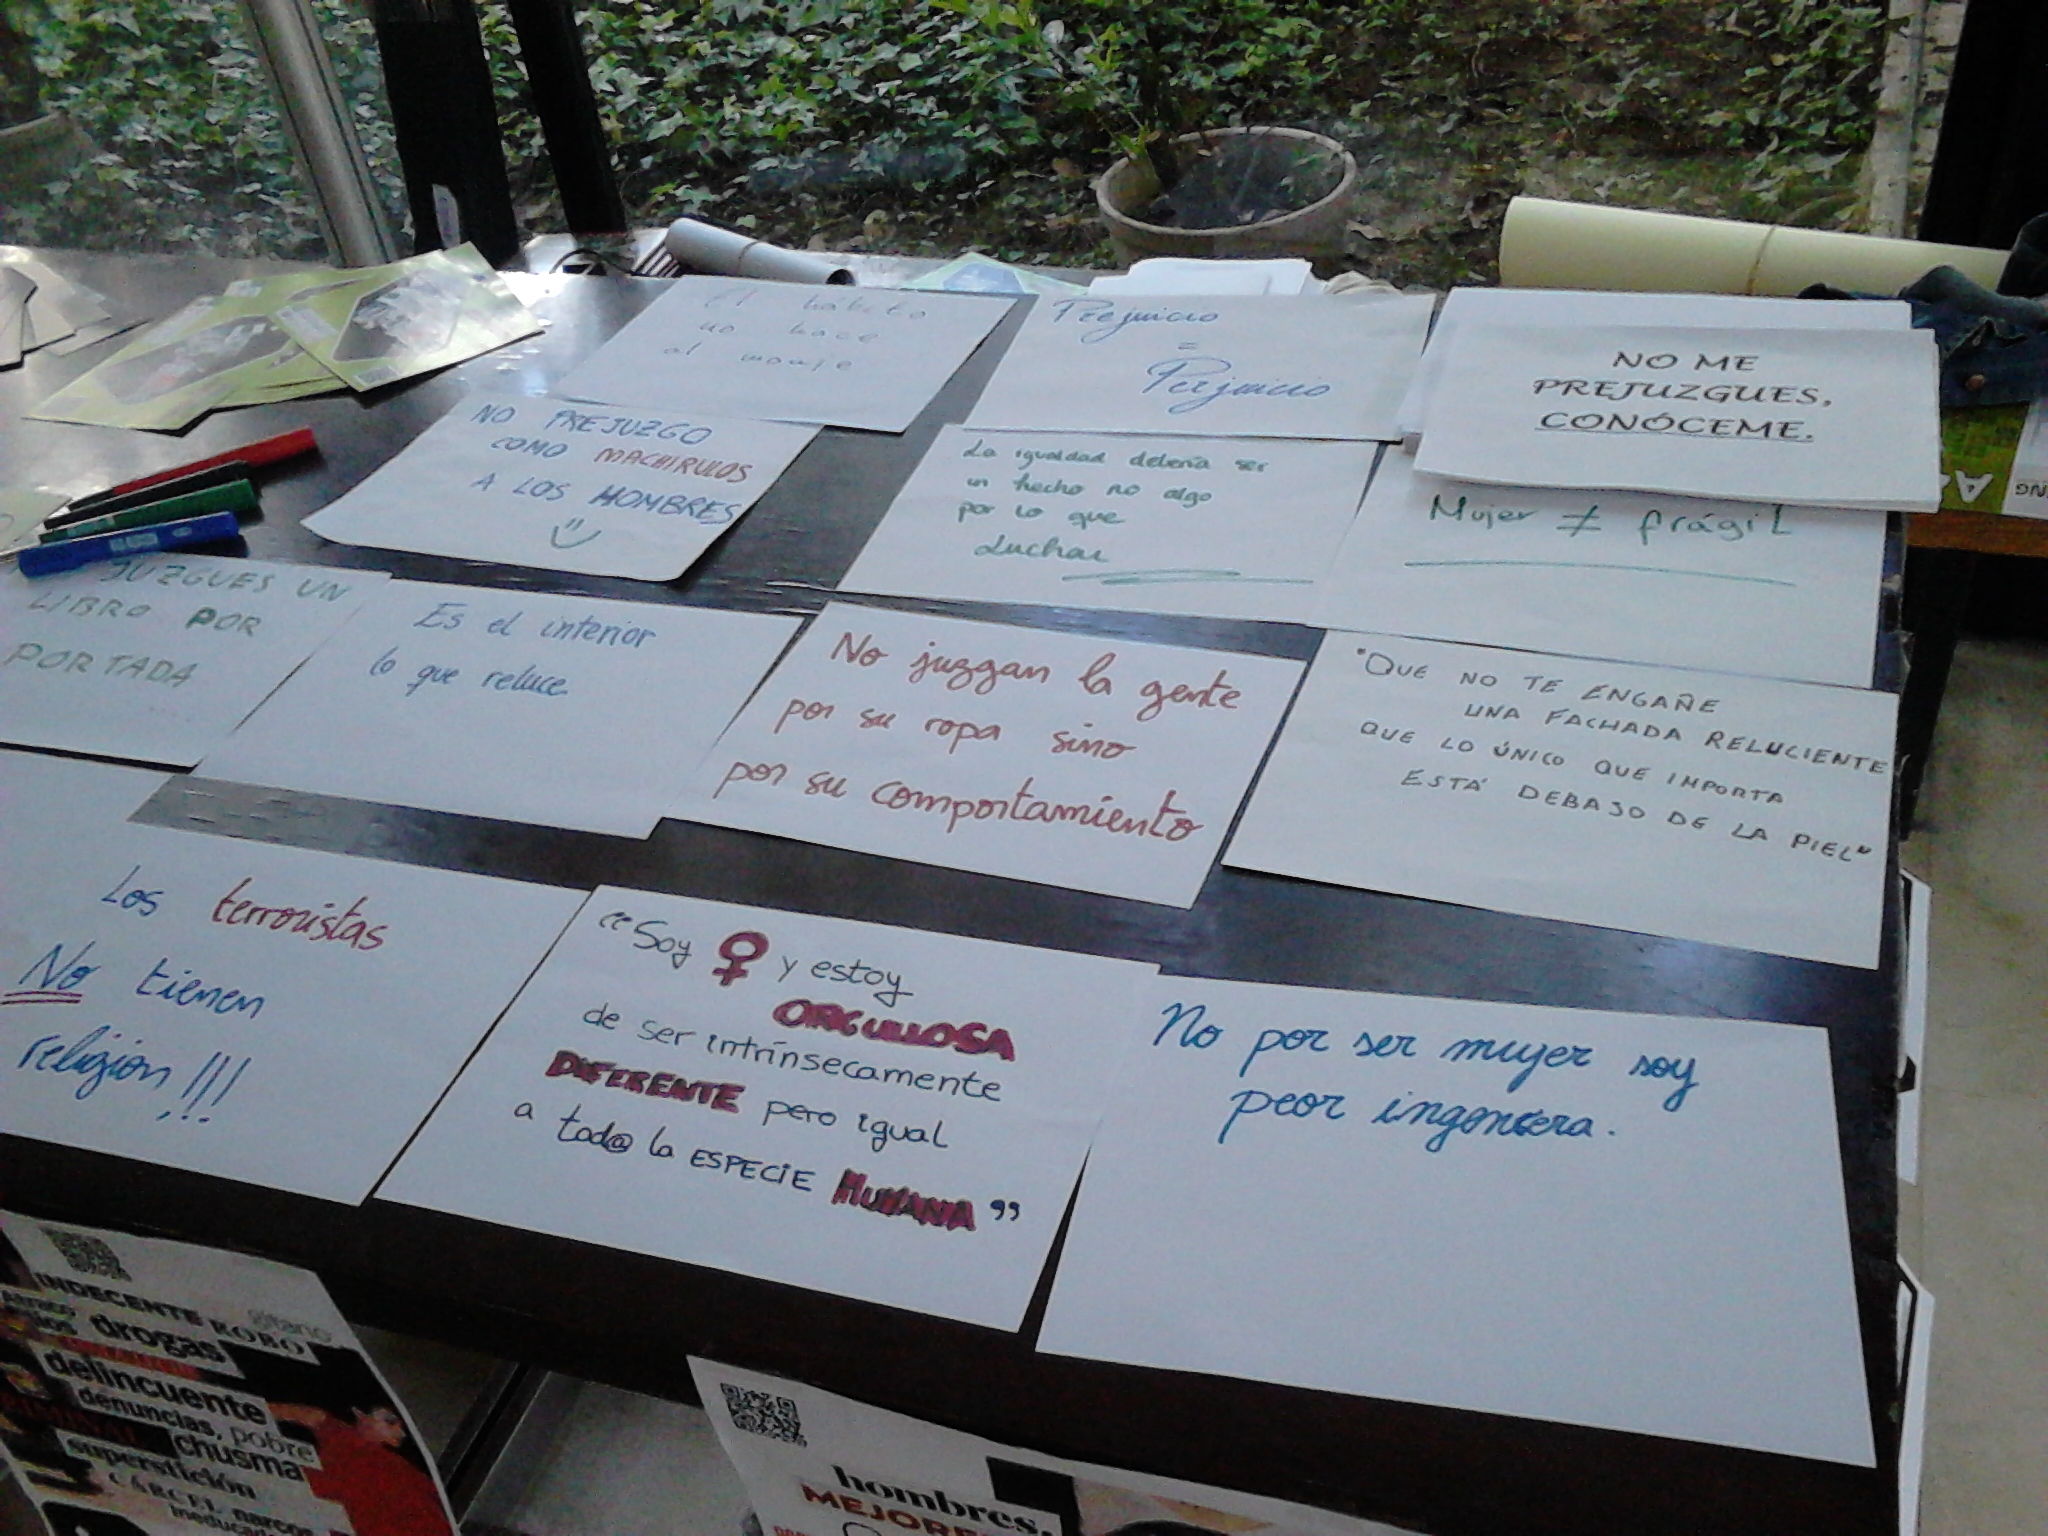 El hábito
no hace
al monje
Prejuicio
=
Perjuicio
NO ME
PREJUZGUES,
CONÓCEME.
NO PREJUZGO
COMO MACHIRULOS
A LOS HOMBRES
La igualdad debería ser
un hecho no algo
por lo que
luchar
Mujer ≠ frágil
JUZGUES UN
LIBRO POR
PORTADA
Es el interior
lo que reluce
No juzgan la gente
por su ropa sino
por su comportamiento
"QUE NO TE ENGAÑE
UNA FACHADA RELUCIENTE
QUE LO ÚNICO QUE IMPORTA
ESTÁ DEBAJO DE LA PIEL"
Los terroristas
No tienen
religion!!!
"Soy ♀ y estoy
ORGULLOSA
de ser intrínsecamente
DIFERENTE pero igual
a tod@ la ESPECIE HUMANA"
No por ser mujer soy
peor ingeniera.
INDECENTE ROBO
gitano
drogas
delincuente
denuncias, pobre
chusma
superstición
CÁRCEL narcos
hombres,
MEJORE